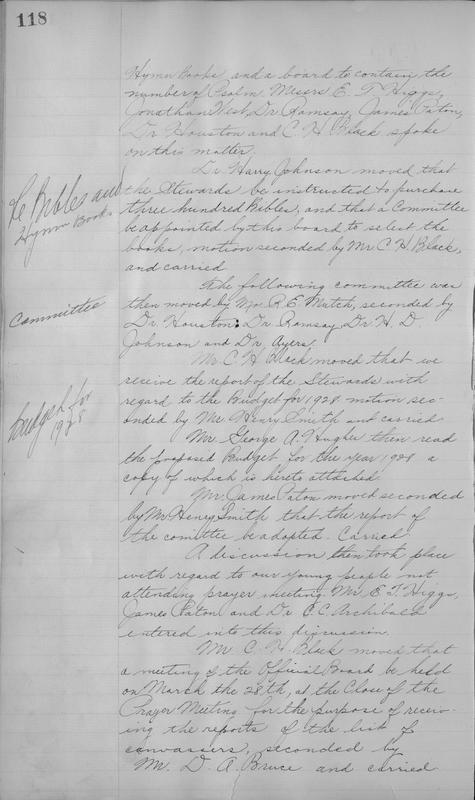 118
Hymn Books and a board to contain the
number of Psalm. Messrs E. T. Higgs,
Jonathan West, Dr Ramsay, James Paton,
Dr Houston and C H Black spoke
on this matter.
Dr. Harry Johnson moved that
Re Bibles and
Hymn Books
the Stewards be instructed to purchase
three hundred Bibles, and that a Committee
be appointed by this board to select the
books, motion seconded by Mr C. H. Black,
and carried
The following committee was
Committee
then moved by Mr. R. E. Mutch, seconded by
Dr. Houston: Dr Ramsay, Dr H. D.
Johnson and Dr. Ayers.
Mr C. H. Black moved that we
receive the report of the Stewards with
Budget for
1928
regard to the Budget for 1928 motion sec-
onded by Mr Henry Smith and carried
Mr. George A. Hughes then read
the proposed Budget for the year 1928 a
copy of which is hereto attached
Mr James Paton moved seconded
by Mr Henry Smith that the report of
the comittee be adopted. Carried.
A discussion then took place
with regard to our young people not
attending prayer meeting. Mr. E. T. Higgs,
James Paton and Dr C.C. Archibald
entered into this discussion.
Mr C. H. Black moved that
a meeting of the Official Board be held
on March the 28th, at the Close of the
Prayer Meeting for the purpose of receiv-
ing the reports of the list of
canvassers, seconded by
Mr. D. A. Bruce and carried